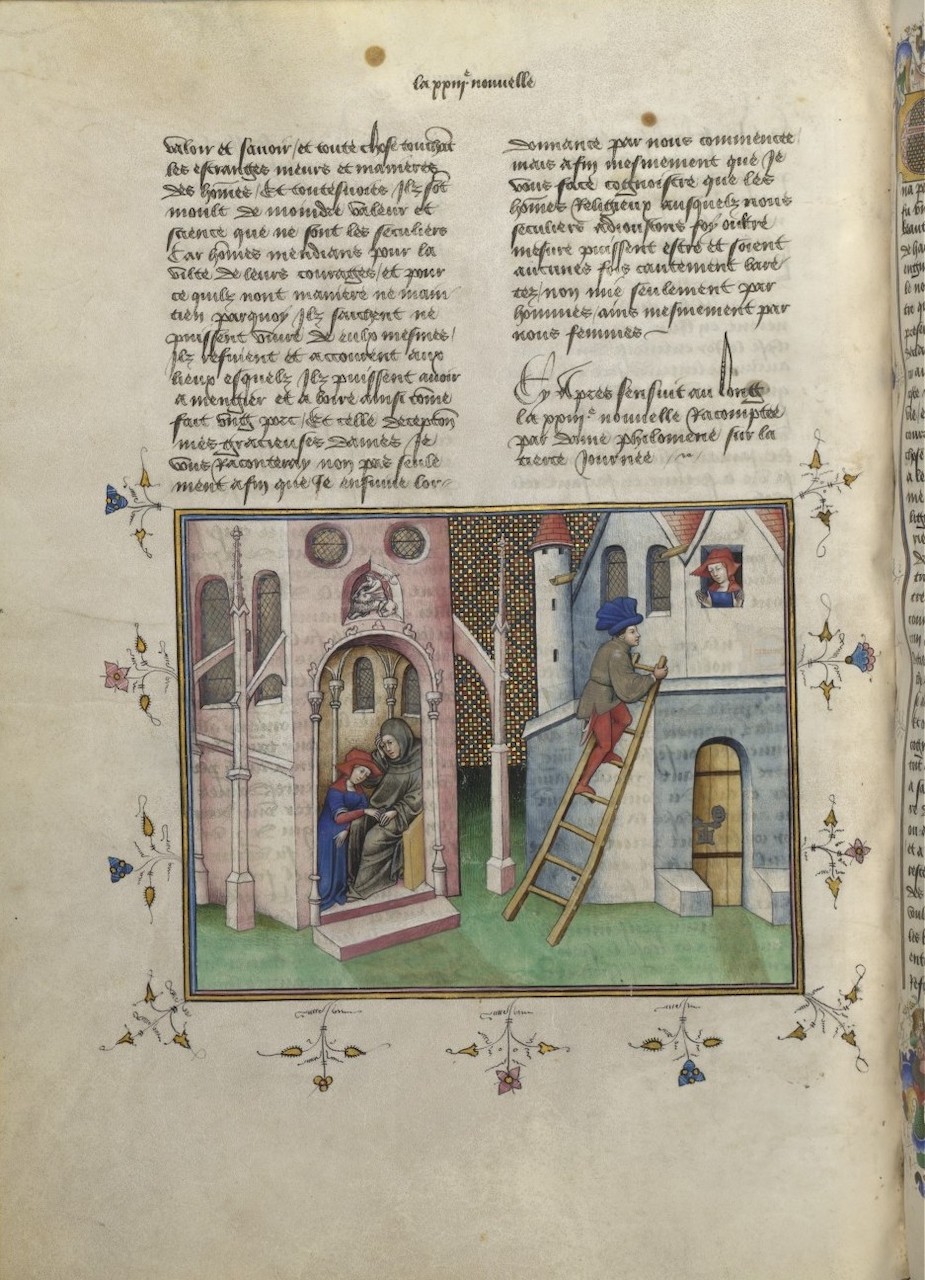 la xxiiie nouvelle
valoir et savoir / et toute chose touchāt
les estranges meurs et manieres
des hōmes / Et toutesvoies Ilz sōt
moult de moindre valeur et
science que ne sont les seculiers
Car hōmes mendians pour la
vilte de leurs courages / et pour
ce quilz nont maniere ne main
tien parquoy Ilz saichent ne
puissent vivre de eulx mesmes /
Ilz refuient et accourent aux
lieux esquelz Ilz puissent avoir
a mengier et a boire ainsi cōme
fait ung porc / Et telle deceptōn
mes gracieuses dames Je
vous Raconteray non pas seule
ment afin que Je ensuive lor-
donnance par nous commencee
mais afin mesmement que Je
vous face cognoistre que les
hōmes Religieux ausquelz nous
seculiers adioustons foy oultre
mesure puissent estre et soient
aucunes fois cautement bare
tez / non mie seulement par
hommes / ains mesmement par
nous femmes
Cy Apres sensuit au long
la xxiiie nouvelle Racomptee
par dame philomene sur la
tierce Journee